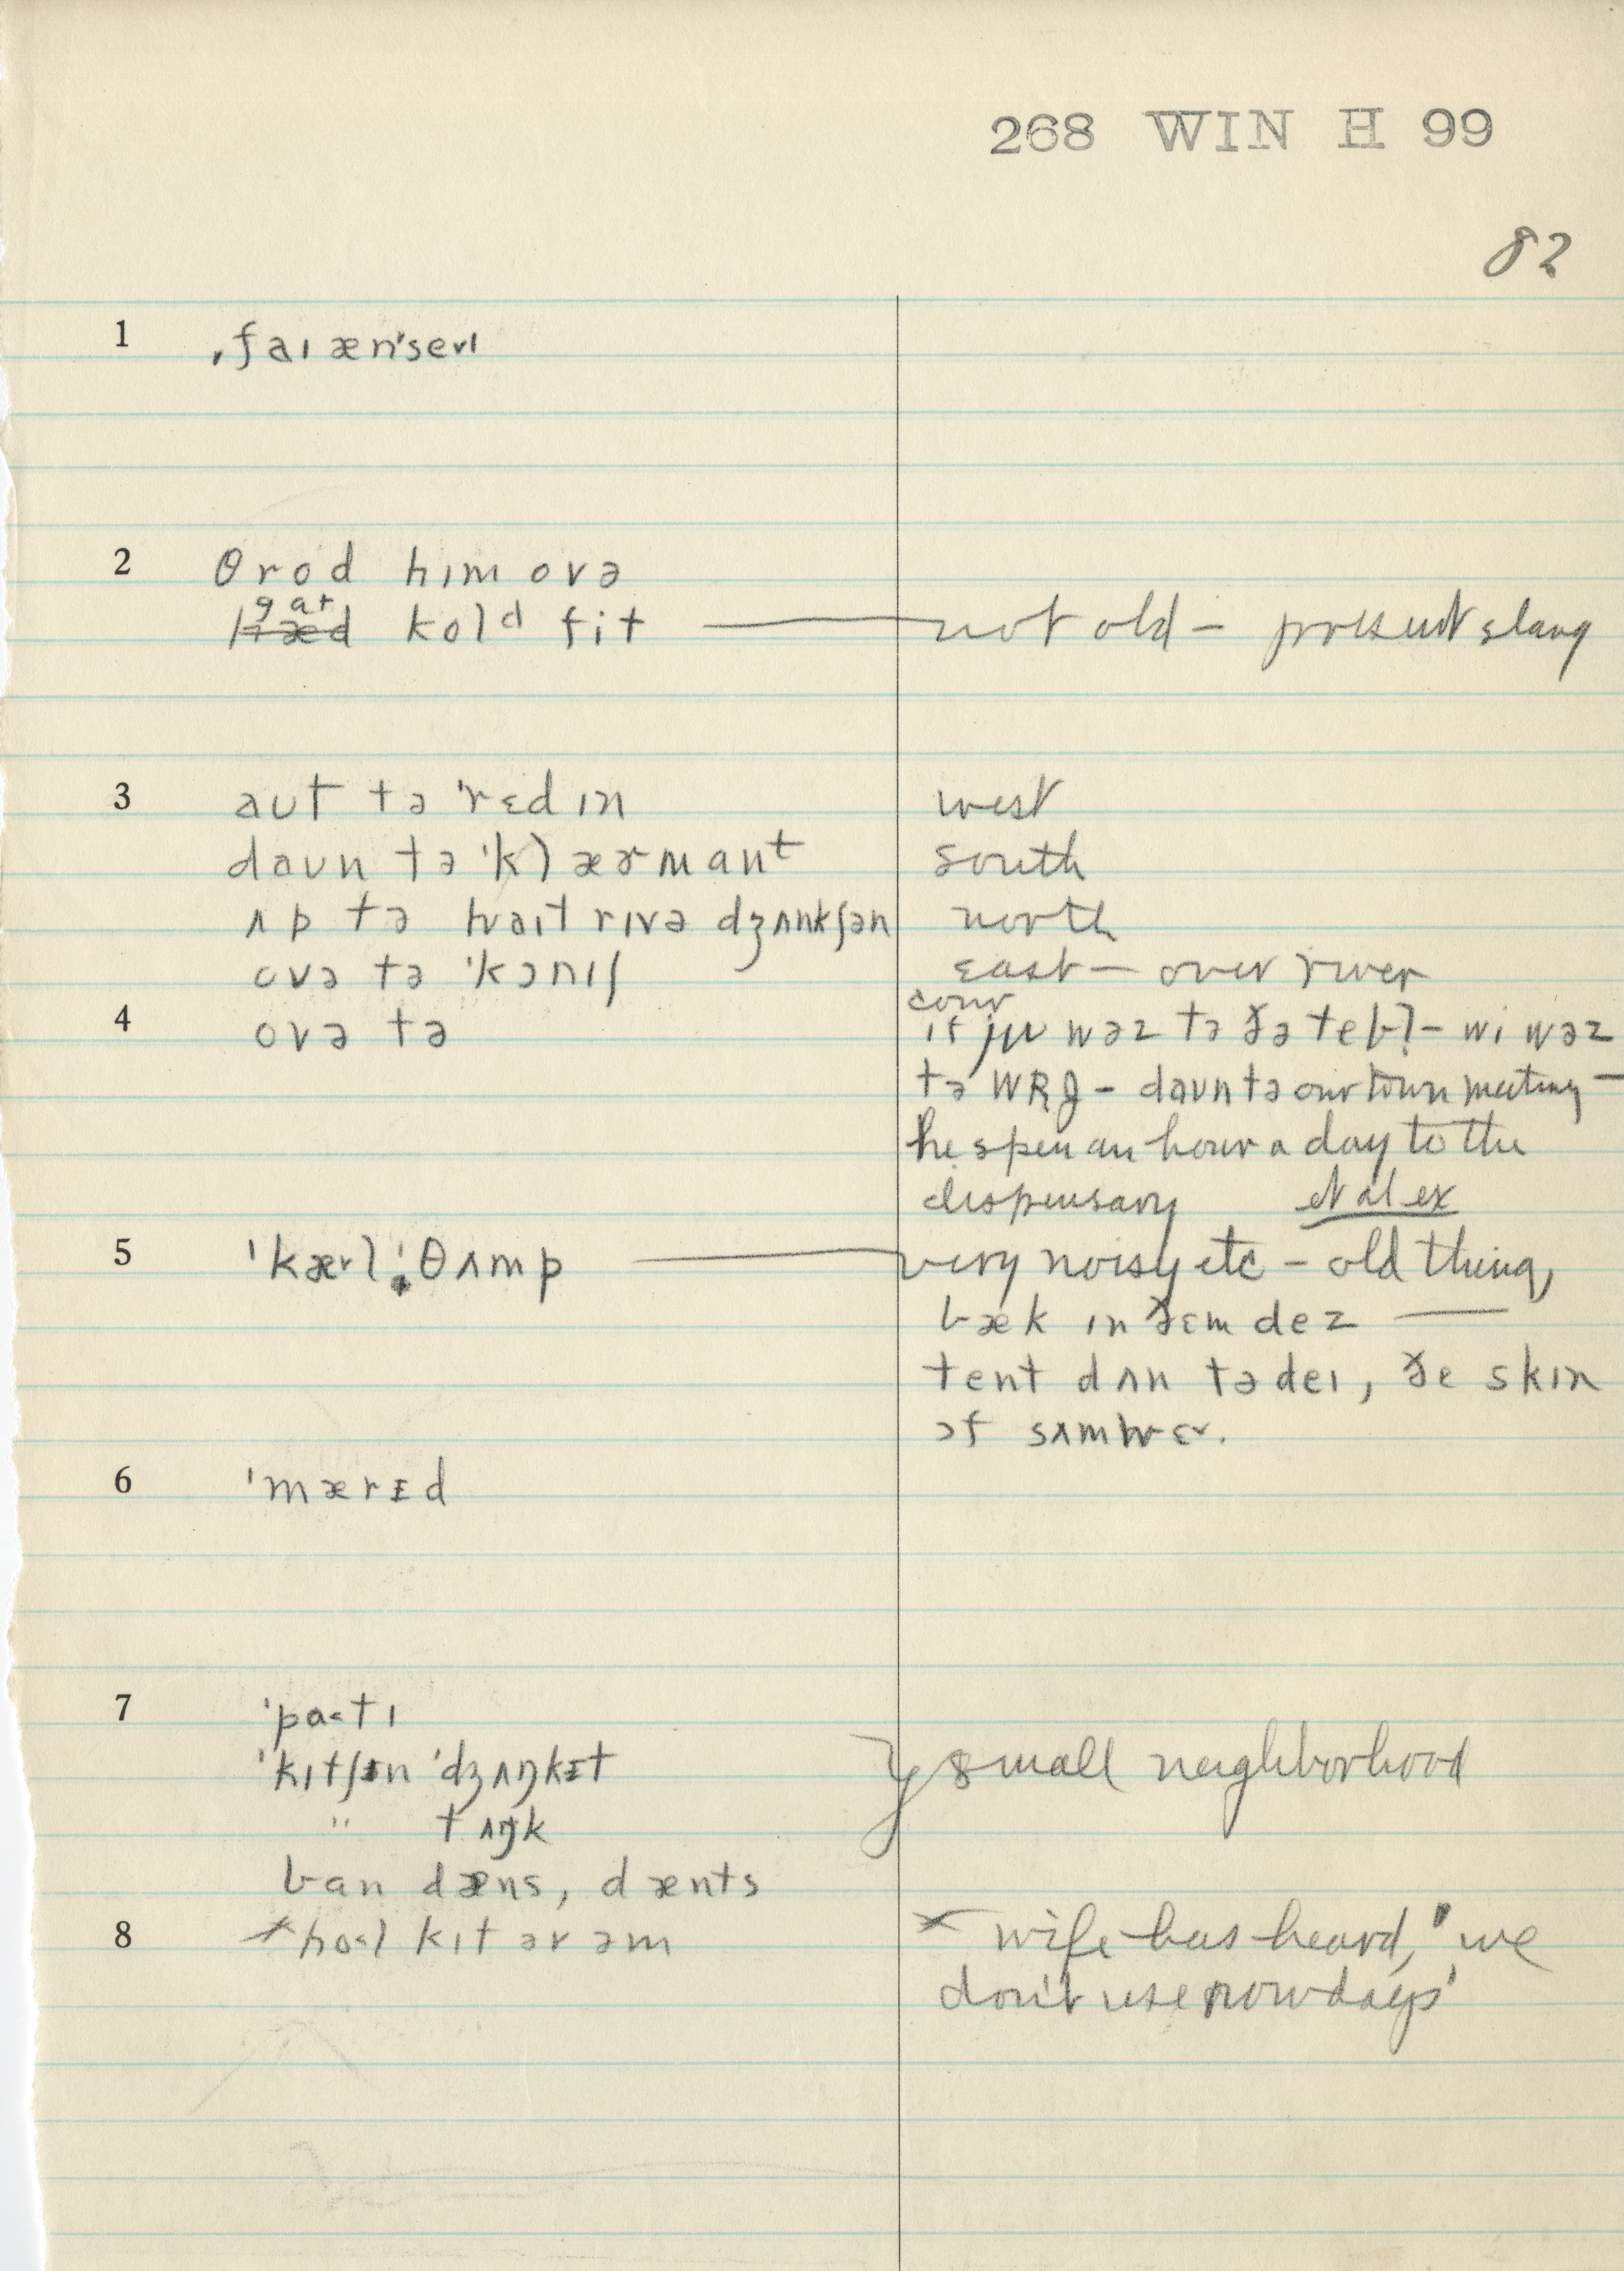 268 WIN H 99
82
1 ˌfaɪ æn'seɪl
2 θrod hɪm ovə
gat
hæd kold fit — not old – present slang
3 aut tə 'rɛdɪn west
daun tə 'klærmant south
ʌp tə hwaɪt rɪvə dʒʌnkʃən north
ovə tə 'kɔnɪʃ east – over river
conv
4 ovə tə if ju wəz tə ðə tebl – wi wəz
tə WRJ – daun tə our town meeting –
he spen an hour a day to the
dispensary et al ex
5 'kærl ˌθʌmp — very noisy etc – old thing,
bæk ɪn ðɛm dez —
tent dʌn tədeɪ, ðe skɪn
6 'mærɪd
7 'patɪ
'kɪtʃɪn 'dʒʌŋkɪt } small neighborhood
" tʌŋk
ban dæns, dænts
8 × hol kɪt ərəm × wife has heard, "we
don't use nowdays"